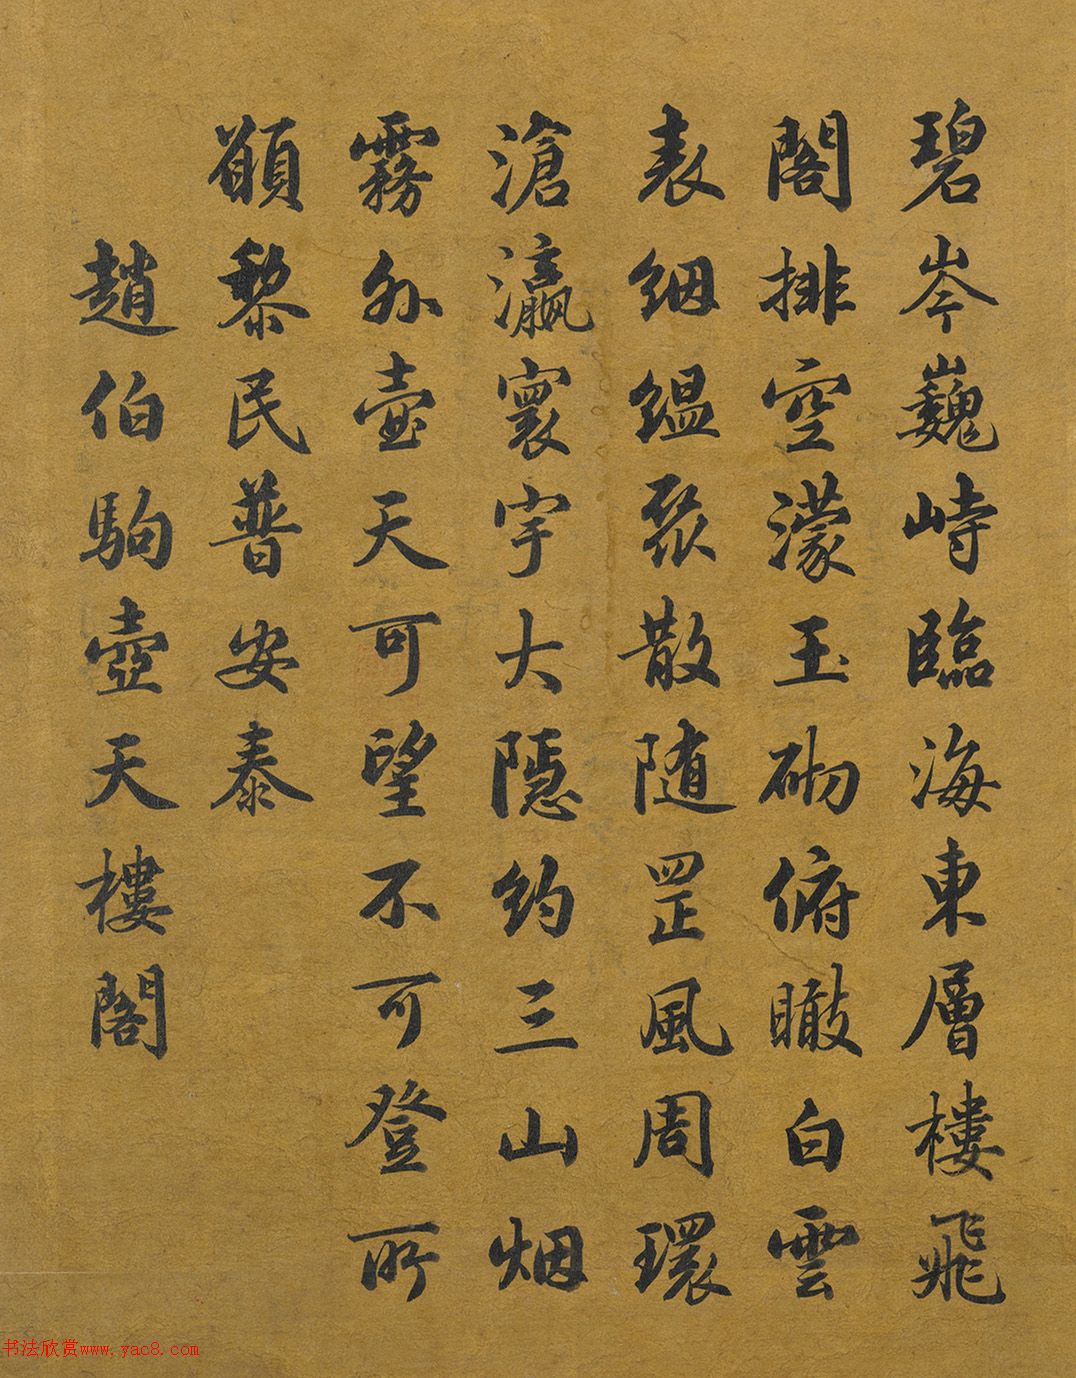 碧岑巍峙臨海東層樓飛
閣排空濛玉砌俯瞰白雲
表絪縕聚散随罡風周環
滄瀛寰宇大隱約三山烟
霧外壺天可望不可登所
願黎民普安泰
趙伯駒壺天樓閣
书法欣赏www.yac8.com